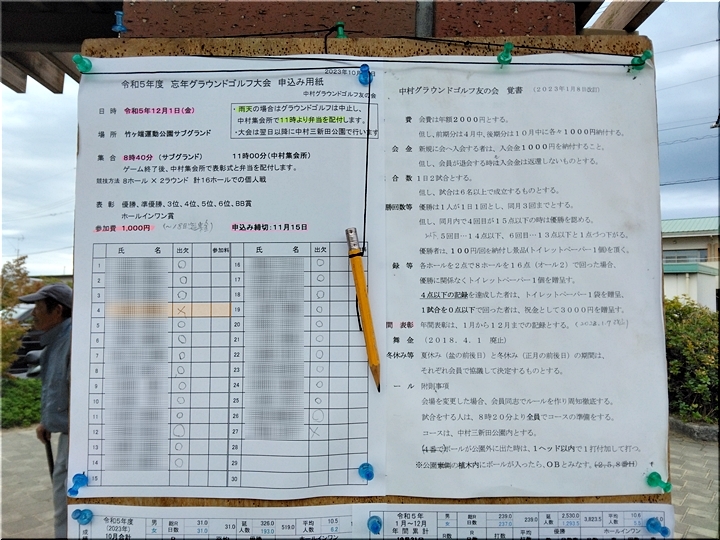 2023年10月
令和5年度 忘年グラウンドゴルフ大会 申込み用紙
中村グラウンドゴルフ友の会
日時 令和5年12月1日(金)
・雨天の場合はグラウンドゴルフは中止し、
中村集会所で11時より弁当を配付します。
・大会は翌日以降に中村三新田公園で行います
場所 竹ヶ端運動公園サブグランド
集合 8時40分 (サブグランド) 11時00分(中村集会所)
ゲーム終了後、中村集会所で表彰式と弁当を配付します。
競技方法 8ホール × 2ラウンド 計16ホールでの個人戦
表彰 優勝、準優勝、3位、4位、5位、6位、BB賞
ホールインワン賞
参加費 1,000円
申込み締切:11月15日
氏 名 出欠 参加料 氏 名 出欠 参加料
1 ○ 16 ○
2 ○ 17 ○
3 ○ 18 ○
4 × 19 ○
5 ○ 20 ○
6 ○ 21 ○
7 ○ 22 ○
8 ○ 23 ○
9 ○ 24 ○
10 ○ 25 ○
11 ○ 26 ○
12 ○ 27 ×
13 ○ 28
14 ○ 29
15 30
中村グラウンドゴルフ友の会 覚書 (2023年1月8日改訂)
費 会費は年額2000円とする。
但し、前期分は4月中、後期分は10月中に各々1000円納付する。
会金 新規に会へ入会する者は、入会金1000円を納付すること。
但し、会員が退会する時は入会金は返還しないものとする。
合数 1日2試合とする。
但し、試合は6名以上で成立するものとする。
勝回数等 優勝は1人が1日1回とし、同月3回までとする。
但し、同月内で4回目が15点以下の時は優勝を認める。
5回目…14点以下、6回目…13点以下と1点づつ下がる。
優勝者は、100円/回を納付し景品(トイレットペーパー1個)を頂く。
録等 各ホールを2点で8ホールを16点(オール2)で回った場合、
優勝に関係なくトイレットペーパー1個を贈呈す。
4点以下の記録を達成した者は、トイレットペーパー1袋を贈呈、
1試合を0点以下で回った者は、祝金として3000円を贈呈す。
間表彰 年間表彰は、1月から12月までの記録とする。
舞金 (2018.4.1 廃止)
冬休み等 夏休み(盆の前後日)と冬休み(正月の前後日)の期間は、
それぞれ会員で協議して決定するものとする。
ール 附則事項
会場を変更した場合、会員同志でルールを作り周知徹底する。
試合をする人は、8時20分より全員でコースの準備をする。
コースは、中村三新田公園内とする。
ボールが公園外に出た時は、1ヘッド以内で1打付加して打つ。
の植木内にボールが入ったら、OBとみなす。(2,5,8番H)
令和5年度 (2023年) 10月合計 男 女 総R 日数 31.0 31.0 延人数 326.0 193.0 519.0 平均人数 10.5 6.2
令和5年 1月〜12月 年間累計 男 女 総R 日数 239.0 237.0 239.0 延人数 2,530.0 1,293.5 3,823.5 平均人数 10.6
優勝 ホールインワン